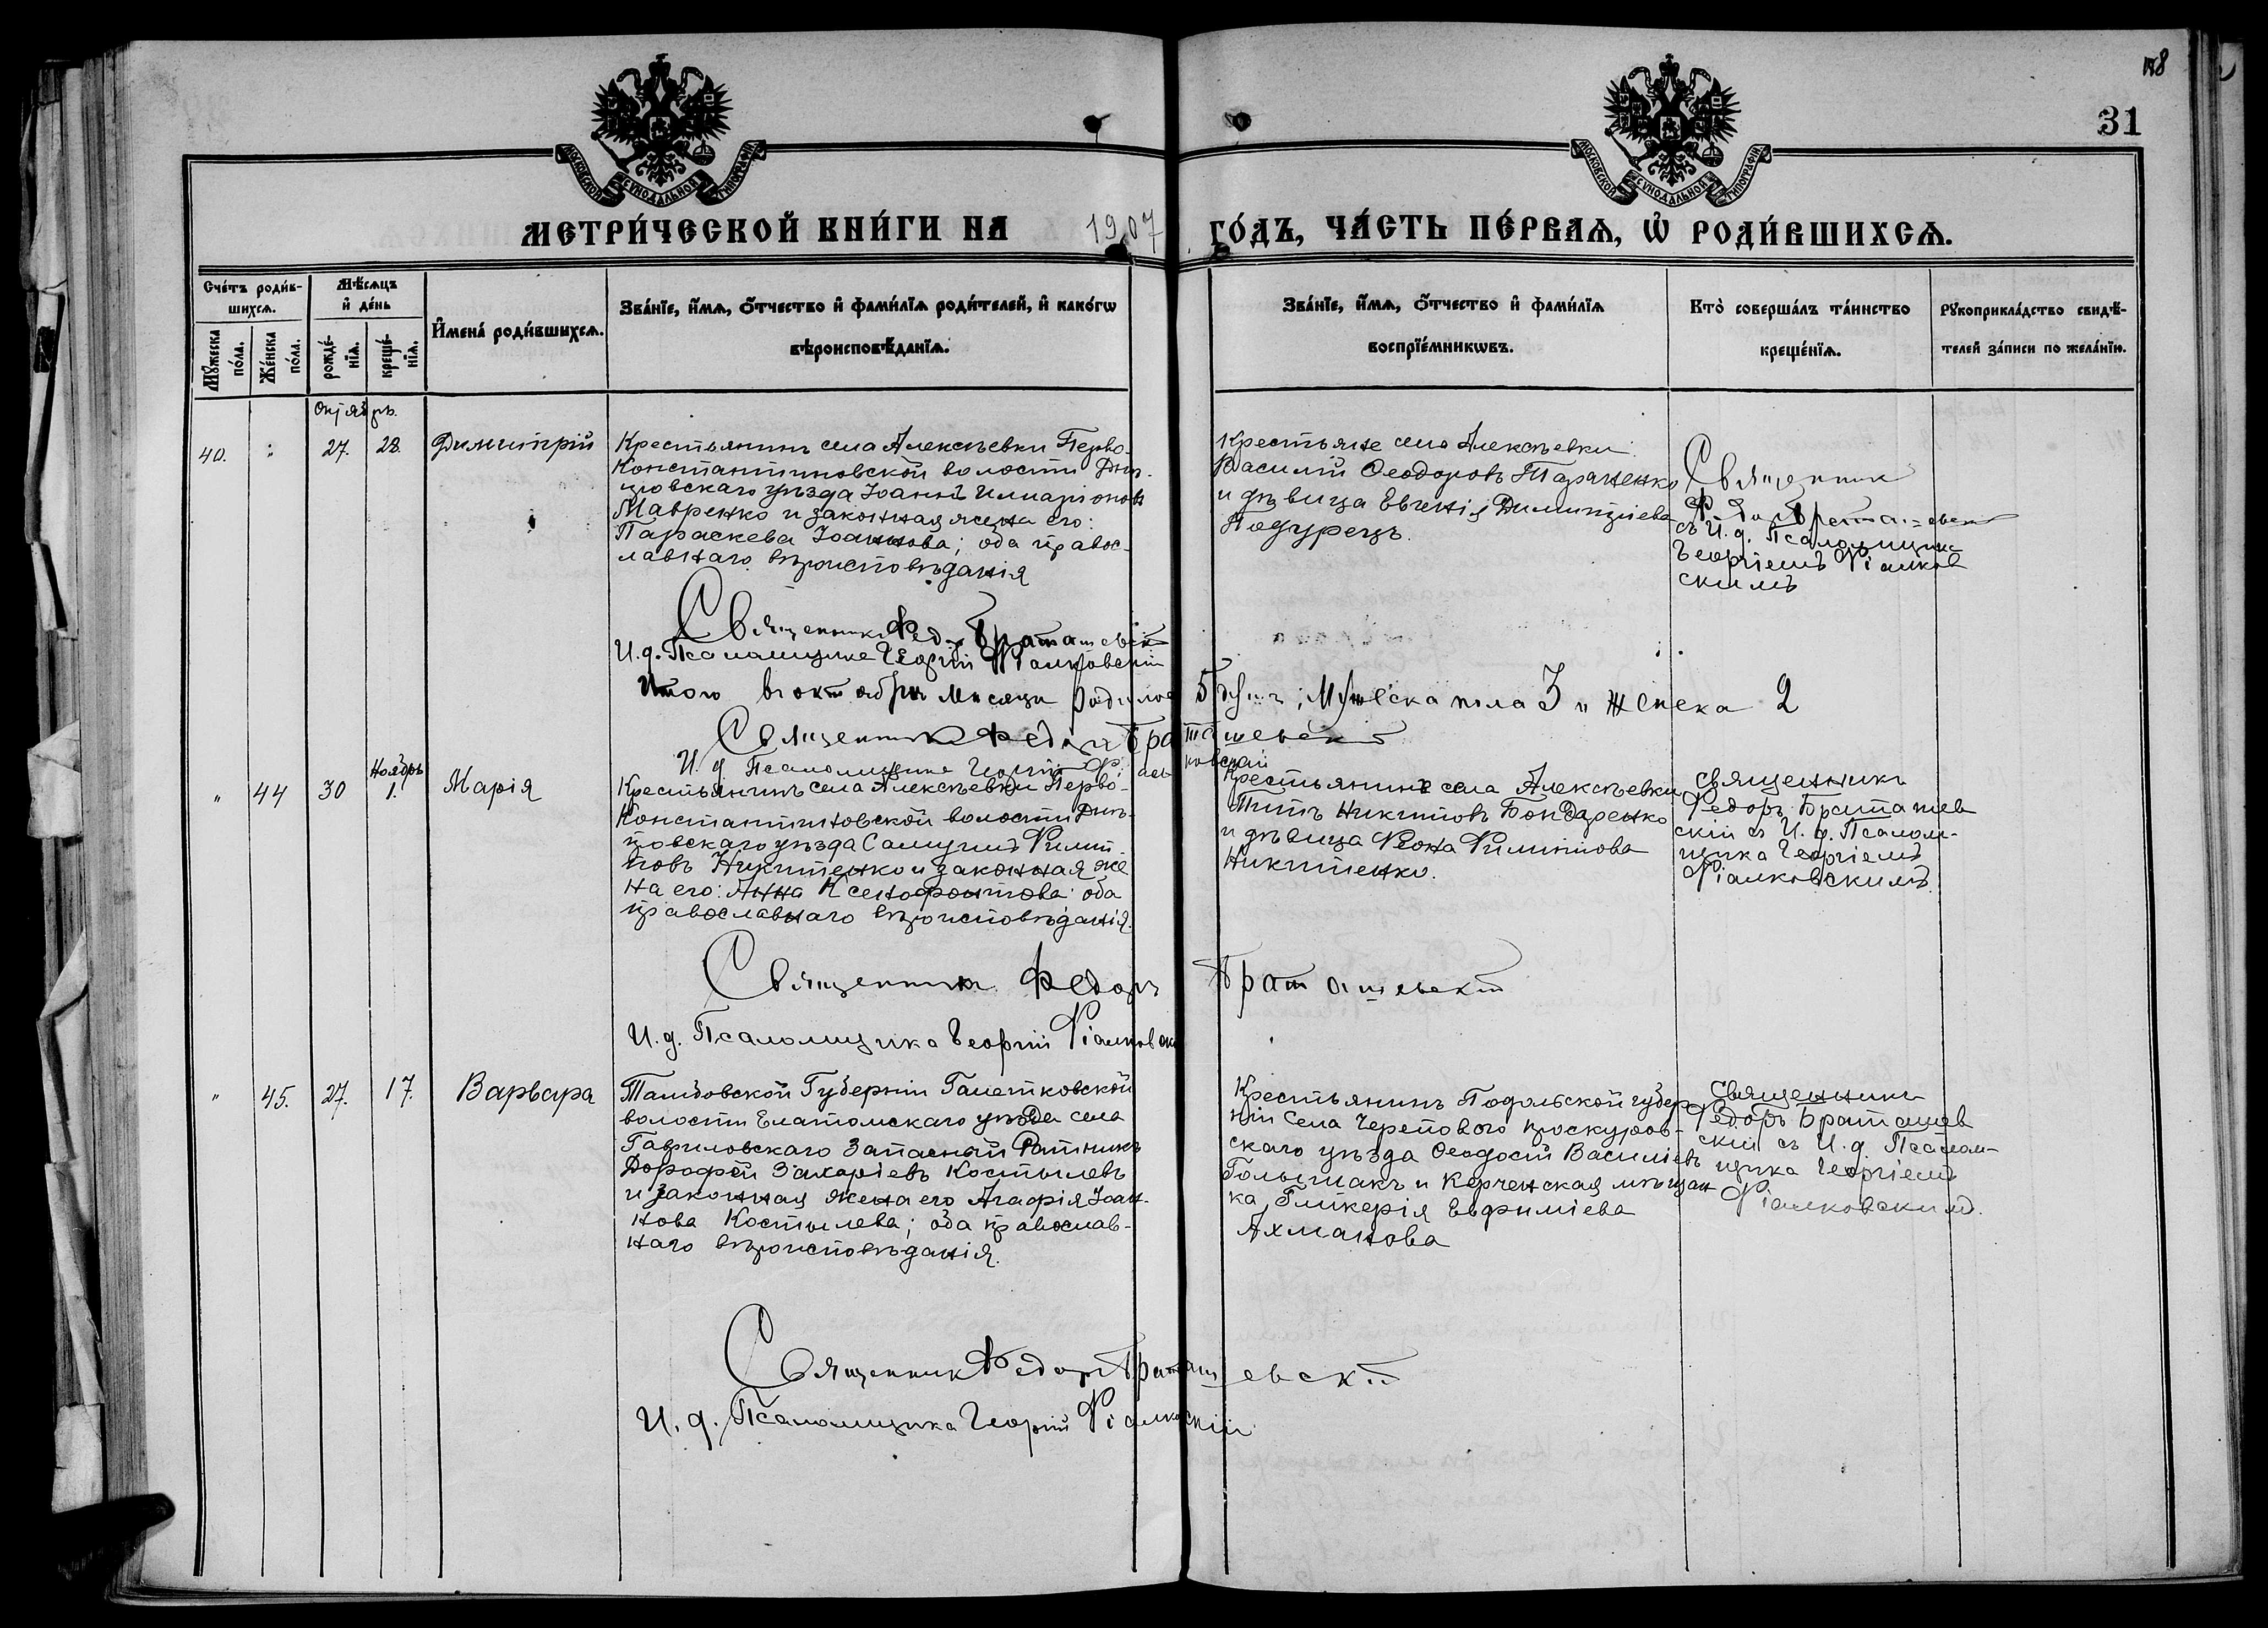 118
31
МОСКОВСКОЙ СѴНОДАЛЬНОЙ ТИПОГРАФІИ
МОСКОВСКОЙ СѴНОДАЛЬНОЙ ТИПОГРАФІИ
МЕТРИ́ЧЕСКОЙ КНИ́ГИ НА 1907 ГО́ДЪ, ЧА́СТЬ ПЕ́РВАѦ, Ѡ҆ РОДИ́ВШИХСѦ.
Сче́тъ роди́в-
шихсѧ.
Мꙋ́жеска
по́ла.
Же́нска
по́ла.
Мѣ́сѧцъ
и҆ де́нь
рожде́-
нїѧ.
креще́-
нїѧ.
И҆мена̀ роди́вшихсѧ.
Зва́нїе, и҆́мѧ, ѻ҆́тчество и҆ фами́лїѧ роди́телей, и҆ како́гѡ
вѣроисповѣ́данїѧ.
Зва́нїе, и҆́мѧ, ѻ҆́тчество и҆ фами́лїѧ
воспрїе́мникѡвъ.
Кто̀ соверша́лъ та́инство
креще́нїѧ.
Рꙋкоприкла́дство свидѣ́-
телей за́писи по жела́нїю.
Октябрь.
40. 27. 28. Димитрій
Крестьянинъ села Алексѣевки Перво-
Константиновской волости Днѣ-
провскаго уѣзда Іоаннъ Иларіоновъ
Мавренко и законная жена его:
Параскева Іоаннова; оба правос-
лавнаго вѣроисповѣданія
Крестьяне села Алексѣевки
Василій Ѳеодоровъ Тараненко
и дѣвица Евгенія Димитріева
Подурецъ.
Священникъ
съ И. д. Псаломщика
Георгіемъ Фіалков
скимъ
Священникъ Федоръ Браташевскій
И. д. Псаломщика Георгій Фіалковскій
Итого въ октябрѣ мѣсяцѣ родилось 5 душъ; Мужеска пола 3 и женска 2
Священникъ Федоръ Браташевскій
И. д. Псаломщика Георгій Фіалковскій
" 44 30 Ноябрь 1. Марія
Крестьянинъ села Алексѣевки Перво-
Константиновской волости Днѣ-
провскаго уѣзда Самуилъ Филип-
повъ Никитенко и законная же
на его: Анна Ксенофонтова: оба
православнаго вѣроисповѣданія.
Крестьянинъ села Алексѣевки
Титъ Никитовъ Бондаренко
и дѣвица Ѳеона Филиппова
Никитенко.
священникъ
Федоръ Браташев
скій съ И. д. Псалом-
щика Георгіемъ
Фіалковскимъ.
Священникъ Федоръ Браташевскій
И. д. Псаломщика Георгій Фіалковскій
" 45. 27. 17. Варвара
Тамбовской Губерніи
волости Елатомскаго уѣзда села
Гавриловскаго Запасный Ратникъ
Дорофей Захаріевъ Костылевъ
и законная жена его Агафія Іоан-
нова Костылева; оба православ-
наго вѣроисповѣданія.
Крестьянинъ Подольской губер
ніи Села Черепового проскуров-
скаго уѣзда Ѳеодосій Василіевъ
Голышакъ и Керченская мѣщан
ка Гликерія Евфиміева
Ахманова
священникъ
Федоръ Браташев
скій съ И. д. Псалом-
щика Георгіемъ
Фіалковскимъ.
Священникъ Федоръ Браташевскій
И. д. Псаломщика Георгій Фіалковскій